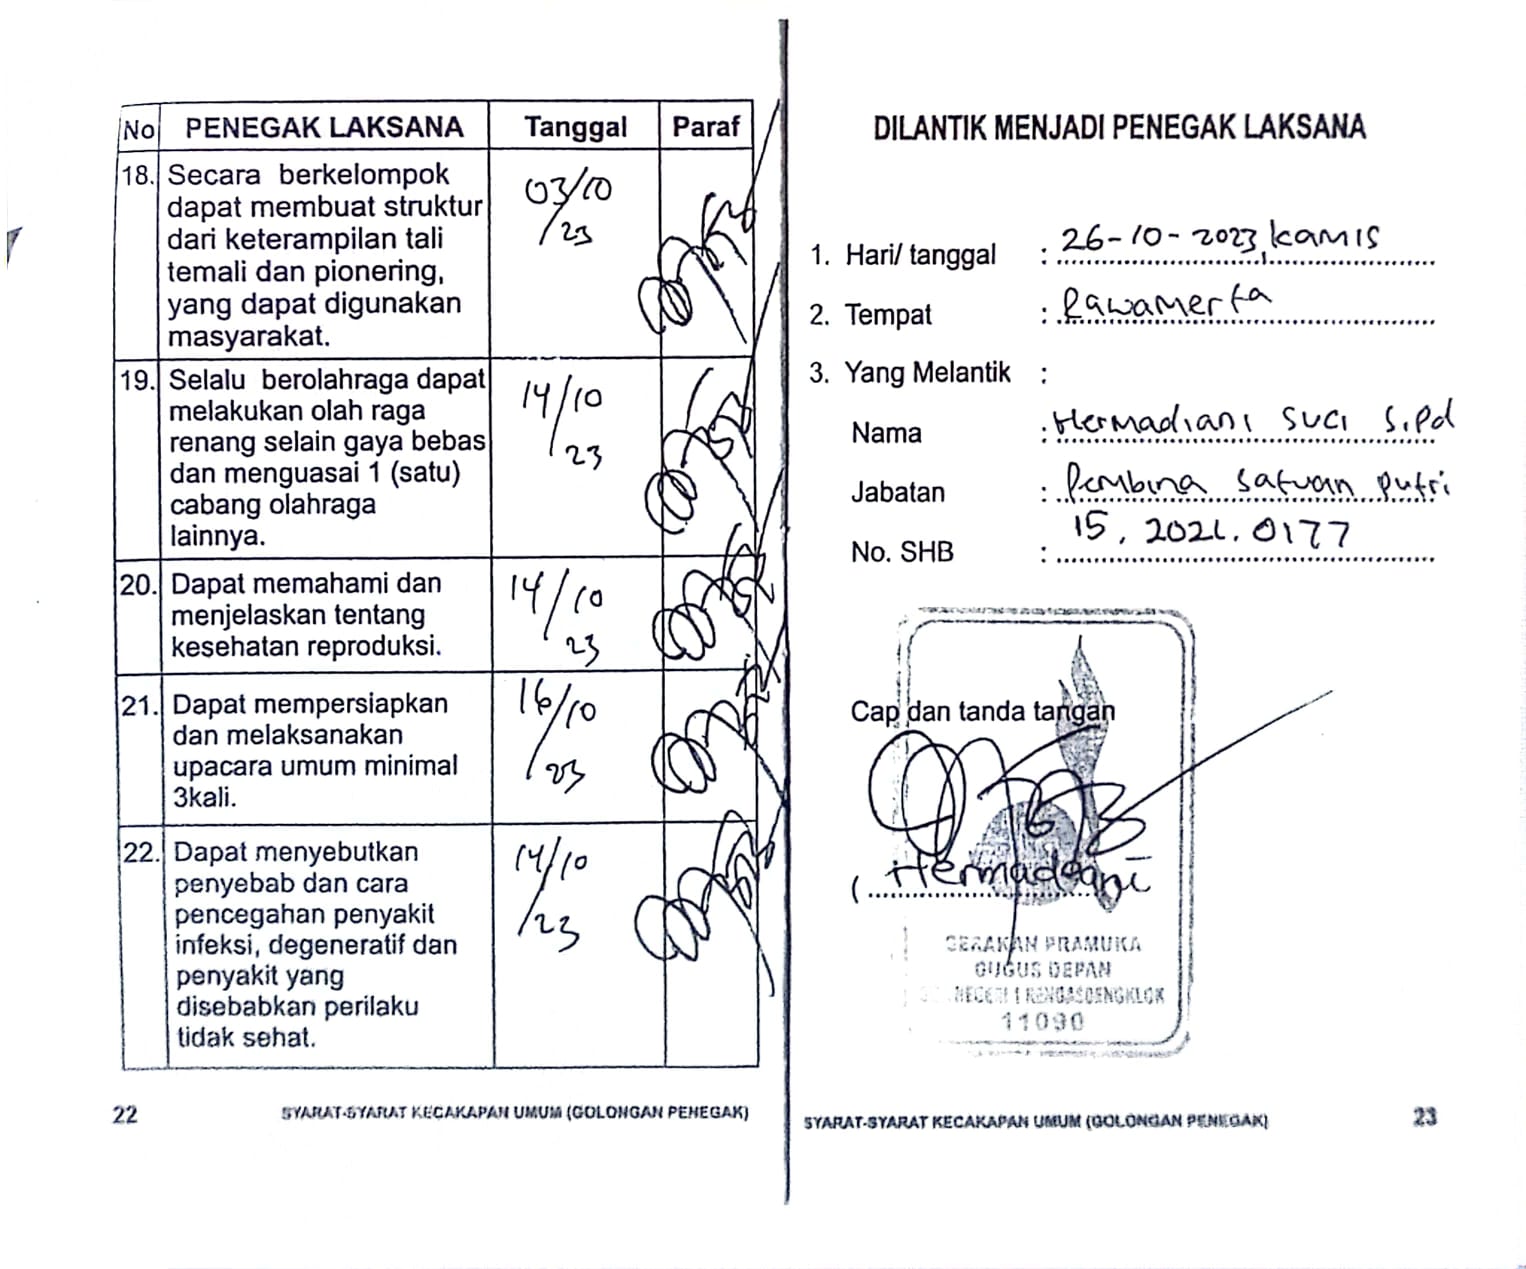 No PENEGAK LAKSANA Tanggal Paraf
18. Secara berkelompok
dapat membuat struktur
dari keterampilan tali
temali dan pionering,
yang dapat digunakan
masyarakat.
03/10
/23
19. Selalu berolahraga dapat
melakukan olah raga
renang selain gaya bebas
dan menguasai 1 (satu)
cabang olahraga
lainnya.
14/10
23
20. Dapat memahami dan
menjelaskan tentang
kesehatan reproduksi.
14/10
23
21. Dapat mempersiapkan
dan melaksanakan
upacara umum minimal
3kali.
16/10
/23
22. Dapat menyebutkan
penyebab dan cara
pencegahan penyakit
infeksi, degeneratif dan
penyakit yang
disebabkan perilaku
tidak sehat.
14/10
/23
22 SYARAT-SYARAT KECAKAPAN UMUM (GOLONGAN PENEGAK)
DILANTIK MENJADI PENEGAK LAKSANA
1. Hari/ tanggal : 26-10-2023, Kamis
2. Tempat : Rawamerta
3. Yang Melantik :
Nama : Hermadiani Suci S.Pd
Jabatan : Pembina Satuan Putri
No. SHB :
Cap dan tanda tangan
( Hermadiani
GERAKAN PRAMUKA
GUGUS DEPAN
NEGERI 1 RENGASDENGKLOK
11090
SYARAT-SYARAT KECAKAPAN UMUM (GOLONGAN PENEGAK) 23